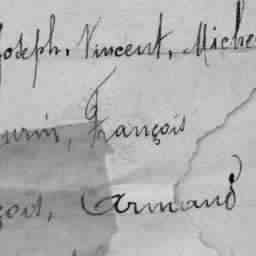 Joseph, Vincent, Miche
urin, François
çois, Armand